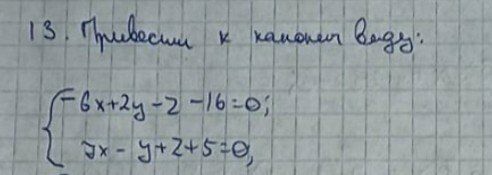 13. Привести к канонич виду:
-6x+2y-z-16=0;
7x-y+z+5=0,